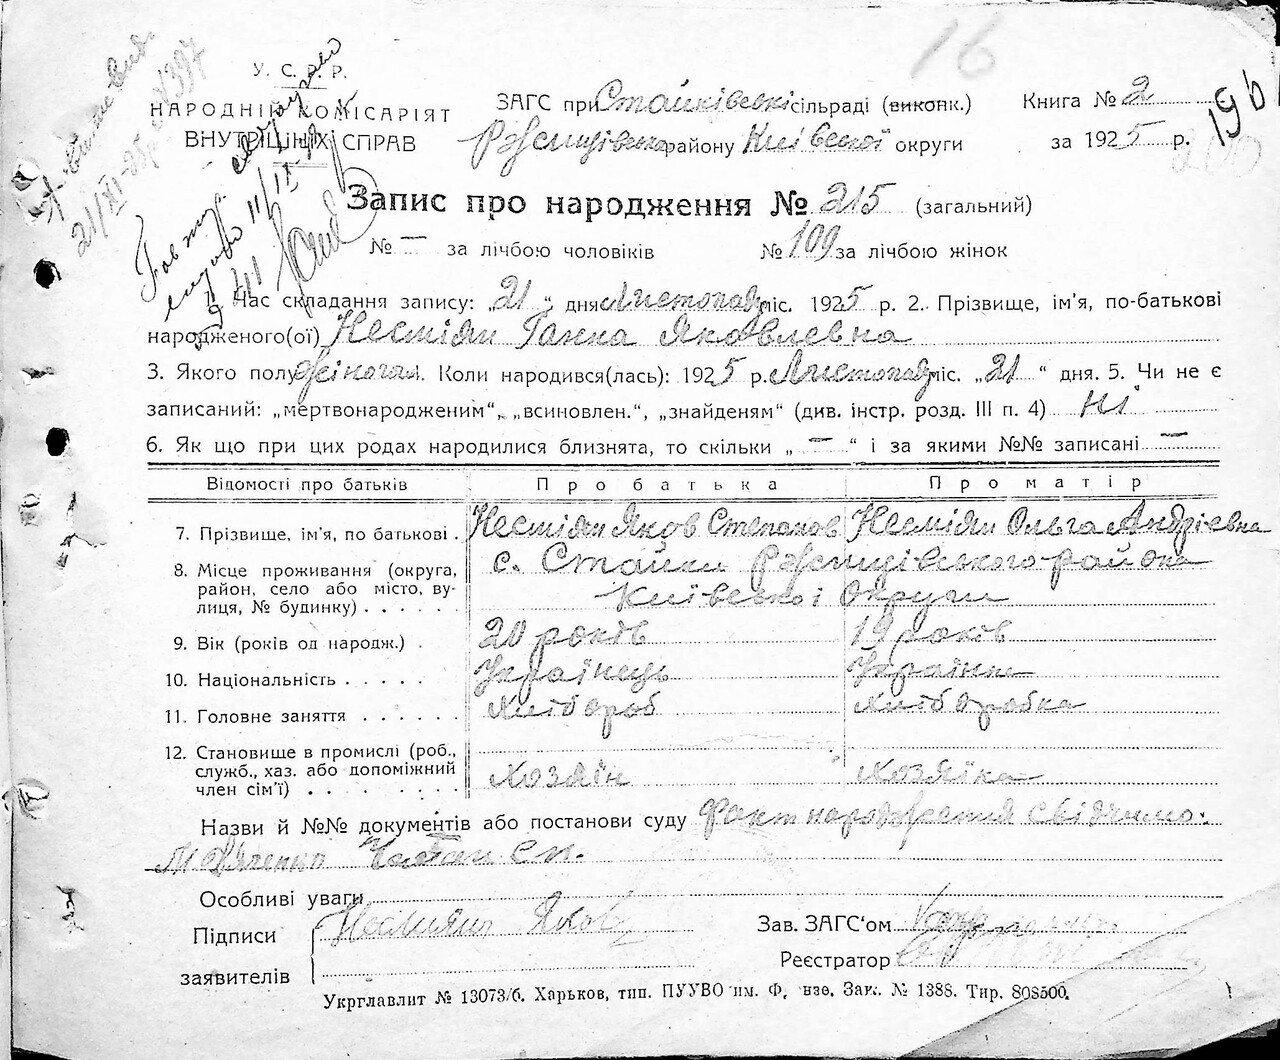 16
У. С. Р. Р.
НАРОДНІЙ КОМІСАРІЯТ
ВНУТРІШНІХ СПРАВ
ЗАГС при Стайківській сільраді (виконк.)
Книга № 2
196
Ржищівського району Київської округи
за 1925 р.
200
Запис про народження № 215 (загальний)
№ — за лічбою чоловіків № 109 за лічбою жінок
1. Час складання запису: „21“ дня Листопада міс. 1925 р. 2. Прізвище, ім'я, по-батькові
народженого(ої) Несміян Ганна Яковлевна
3. Якого полу жіночого 4. Коли народився(лась): 1925 р. Листопада міс. „21“ дня. 5. Чи не є
записаний: „мертвонародженим“, „всиновлен.“, „знайденям“ (див. інстр. розд. III п. 4) ні
6. Як що при цих родах народилися близнята, то скільки „—“ і за якими №№ записані —
Відомості про батьків Про батька Про матір
7. Прізвище, ім'я, по батькові . Несміян Яков Степанов Несміян Ольга Андрієвна
8. Місце проживання (округа, с. Стайки Ржищівського району
район, село або місто, ву-
лиця, № будинку) . . . . . Київської округи
9. Вік (років од народж.) . 20 років 19 років
10. Національність . . . . . Українець Українка
11. Головне заняття . . . . . . Хлібороб Хліборобка
12. Становище в промислі (роб.,
служб., хаз. або допоміжний Хозяін Хозяіка
член сім'ї) . . . . . . . . .
Назви й №№ документів або постанови суду Факт народження свідчимо:
М. Дяченко
Особливі уваги
Підписи Несміян Яков
заявителів
Зав. ЗАГС'ом
Реєстратор
Укрглавліт № 13073/б. Харьков, тип. ПУУВО им. Ф. нзе. Зак. № 1388. Тир. 808500.